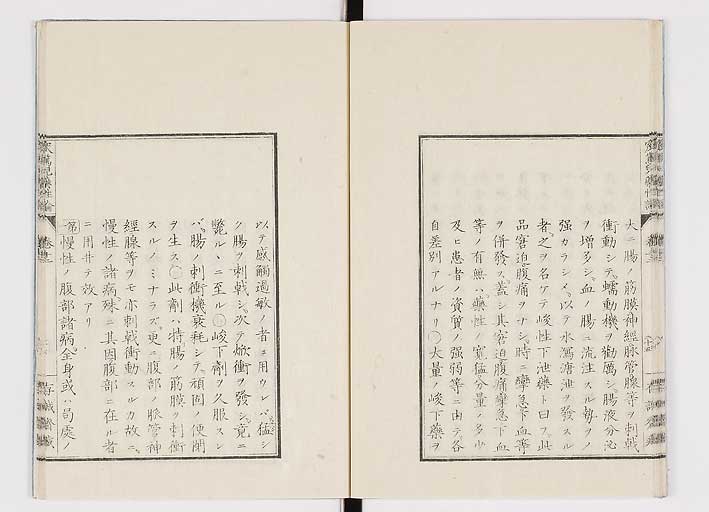 大ニ腸ノ筋膜神經脉管腺等ヲ刺戟
衝動シテ、蠕動機ヲ勸厲シ、腸液分泌
ヲ增多シ、血ノ腸ニ流注スル勢力ノ
强カラシメ、以テ水瀉溏泄ヲ發スル
者、之ヲ名ケテ峻性下泄藥ト曰フ、此
品窘迫腹痛ヲナシ、時ニ攣急下血等
ヲ併發ス、蓋シ其窘迫腹痛攣急下血
等ノ有無ハ藥性ノ寬猛分量ノ多少
及ヒ患者ノ資質ノ强弱等ニ由テ各
自差別アルナリ○大量ノ峻下藥ヲ
以テ感觸過敏ノ者ニ用ウレバ、猛シ
ク腸ヲ刺戟シ、次テ焮衝ヲ發シ、竟ニ
斃ルヽニ至ル○峻下劑ヲ久服スレ
バ、腸ノ刺衝機衰耗シテ、頑固ノ便閉
ヲ生ス○此劑ハ特腸ノ筋膜ヲ刺衝
スルノミナラズ、更ニ腹部ノ脉管神
經腺等ヲモ亦刺戟衝動スルカ故ニ、
慢性ノ諸病、殊ニ其因腹部ニ在ル者
ニ用井テ效アリ
第一慢性ノ腹部諸病、全身或ハ局處ノ